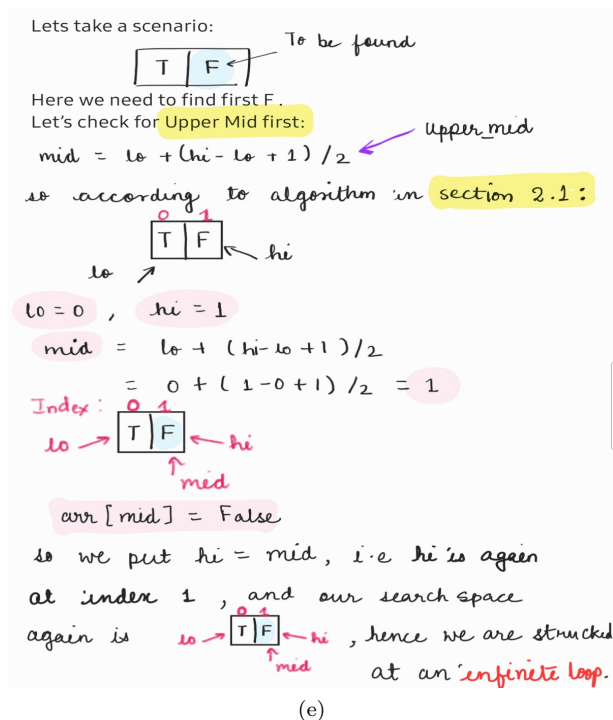 Lets take a scenario:
T F
To be found
Here we need to find first F.
Let's check for Upper Mid first:
upper_mid
mid = lo + (hi - lo + 1) / 2
so according to algorithm in section 2.1:
0 1
T F
lo
hi
lo = 0 , hi = 1
mid = lo + (hi - lo + 1) / 2
= 0 + ( 1 - 0 + 1) / 2 = 1
Index: 0 1
lo T F hi
mid
arr [mid] = False
so we put hi = mid, i.e hi is again
at index 1 , and our search space
0 1
again is lo T F hi , hence we are strucked
mid
at an infinite loop.
(e)